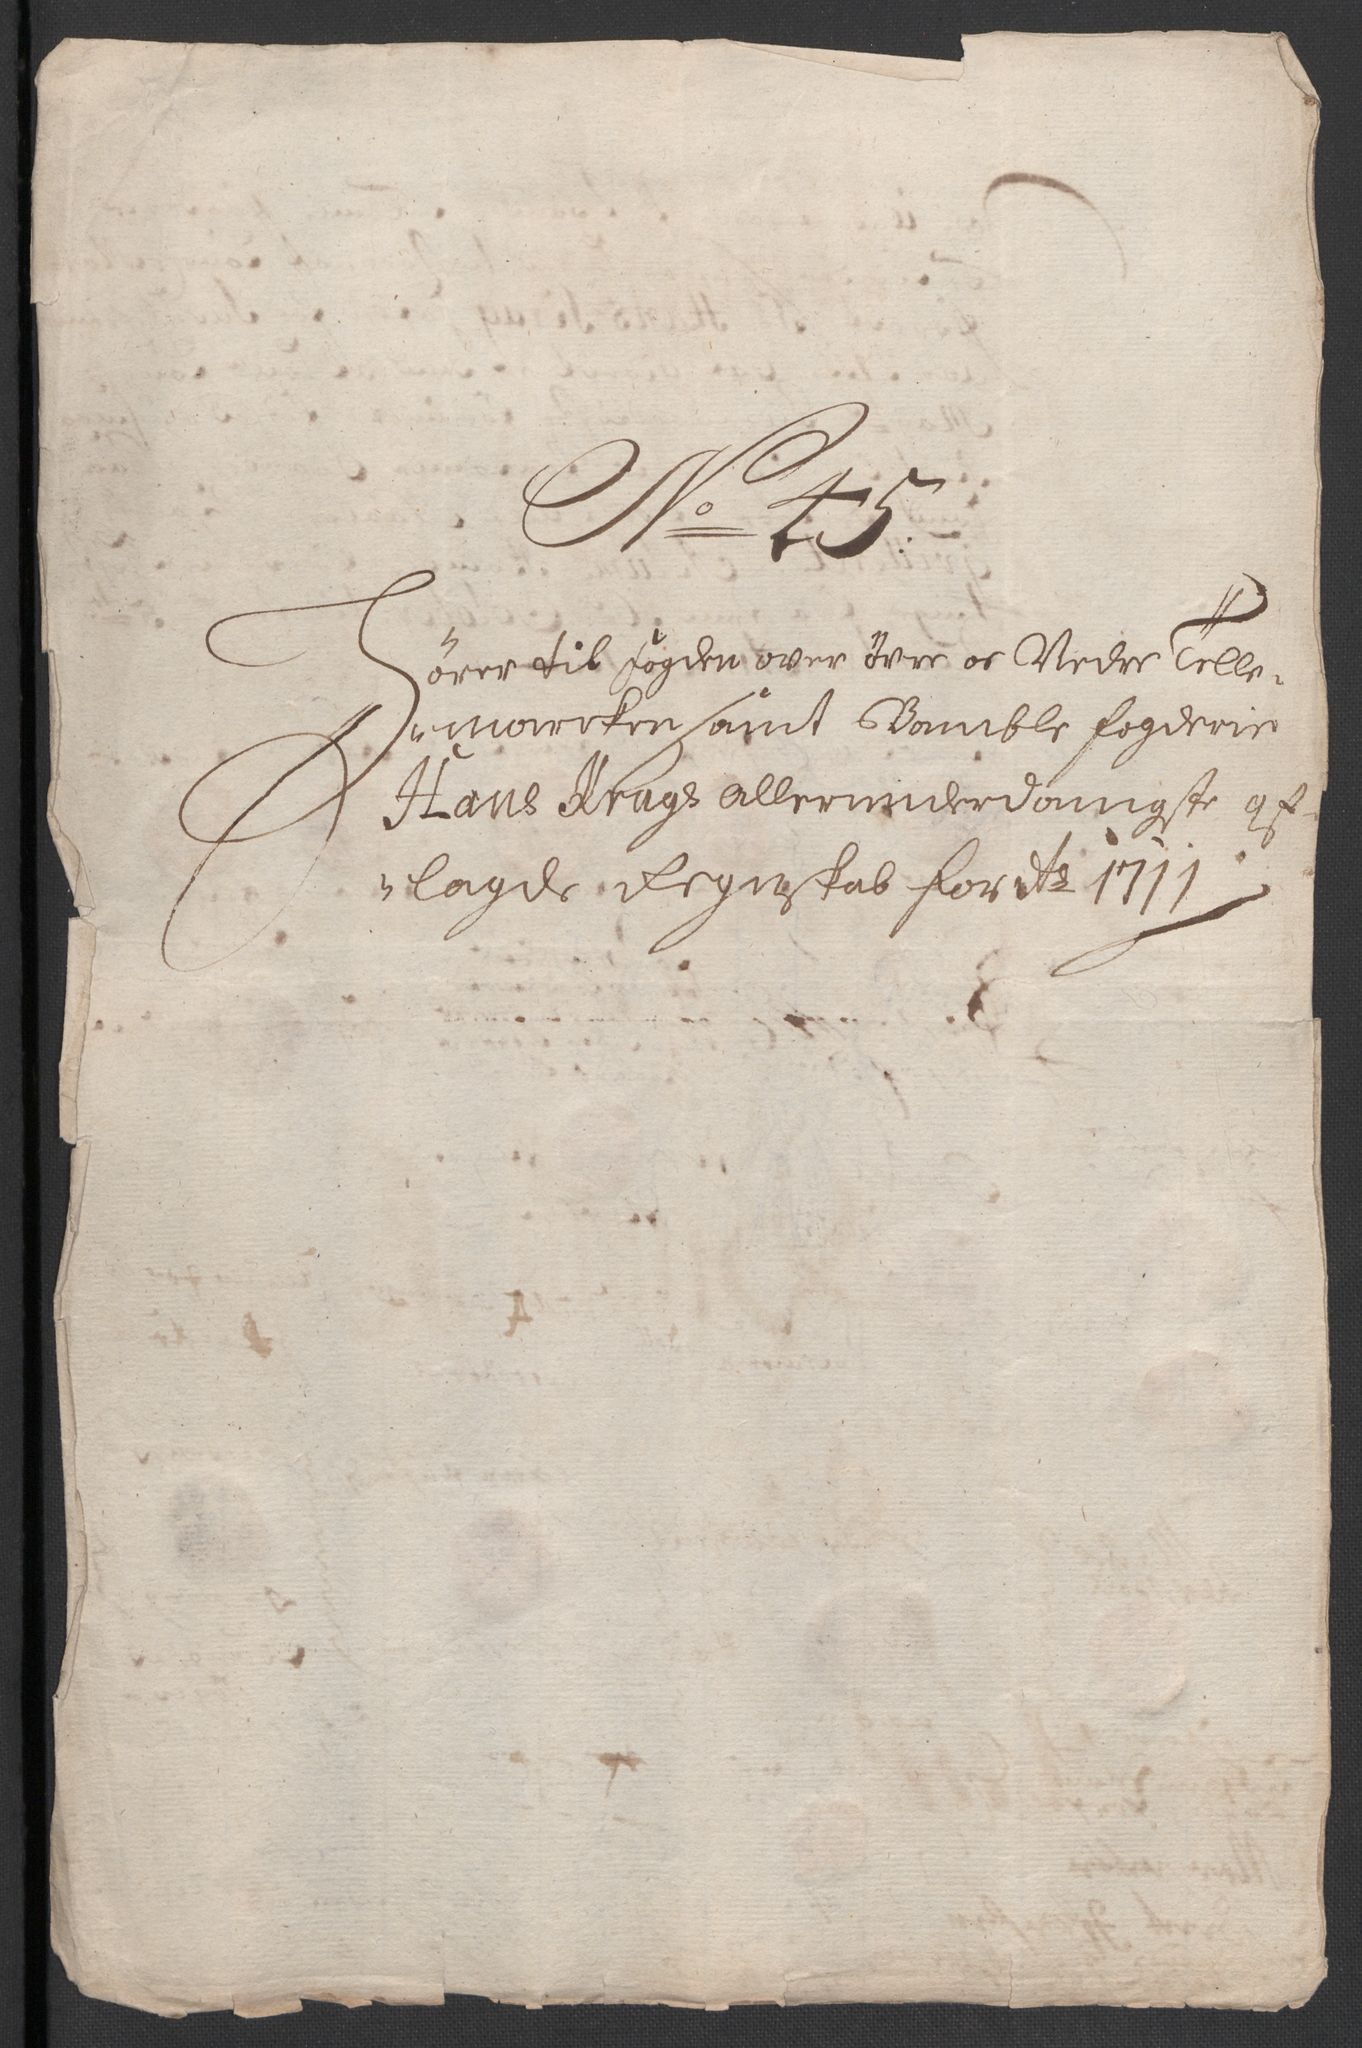 No 45.
Hører til fogden over øvre oc Nedre Telle-
marcken samt Bamble fogderie
Hans Krags allerunderdanigste af-
lagde Regnskab for Ao 1711